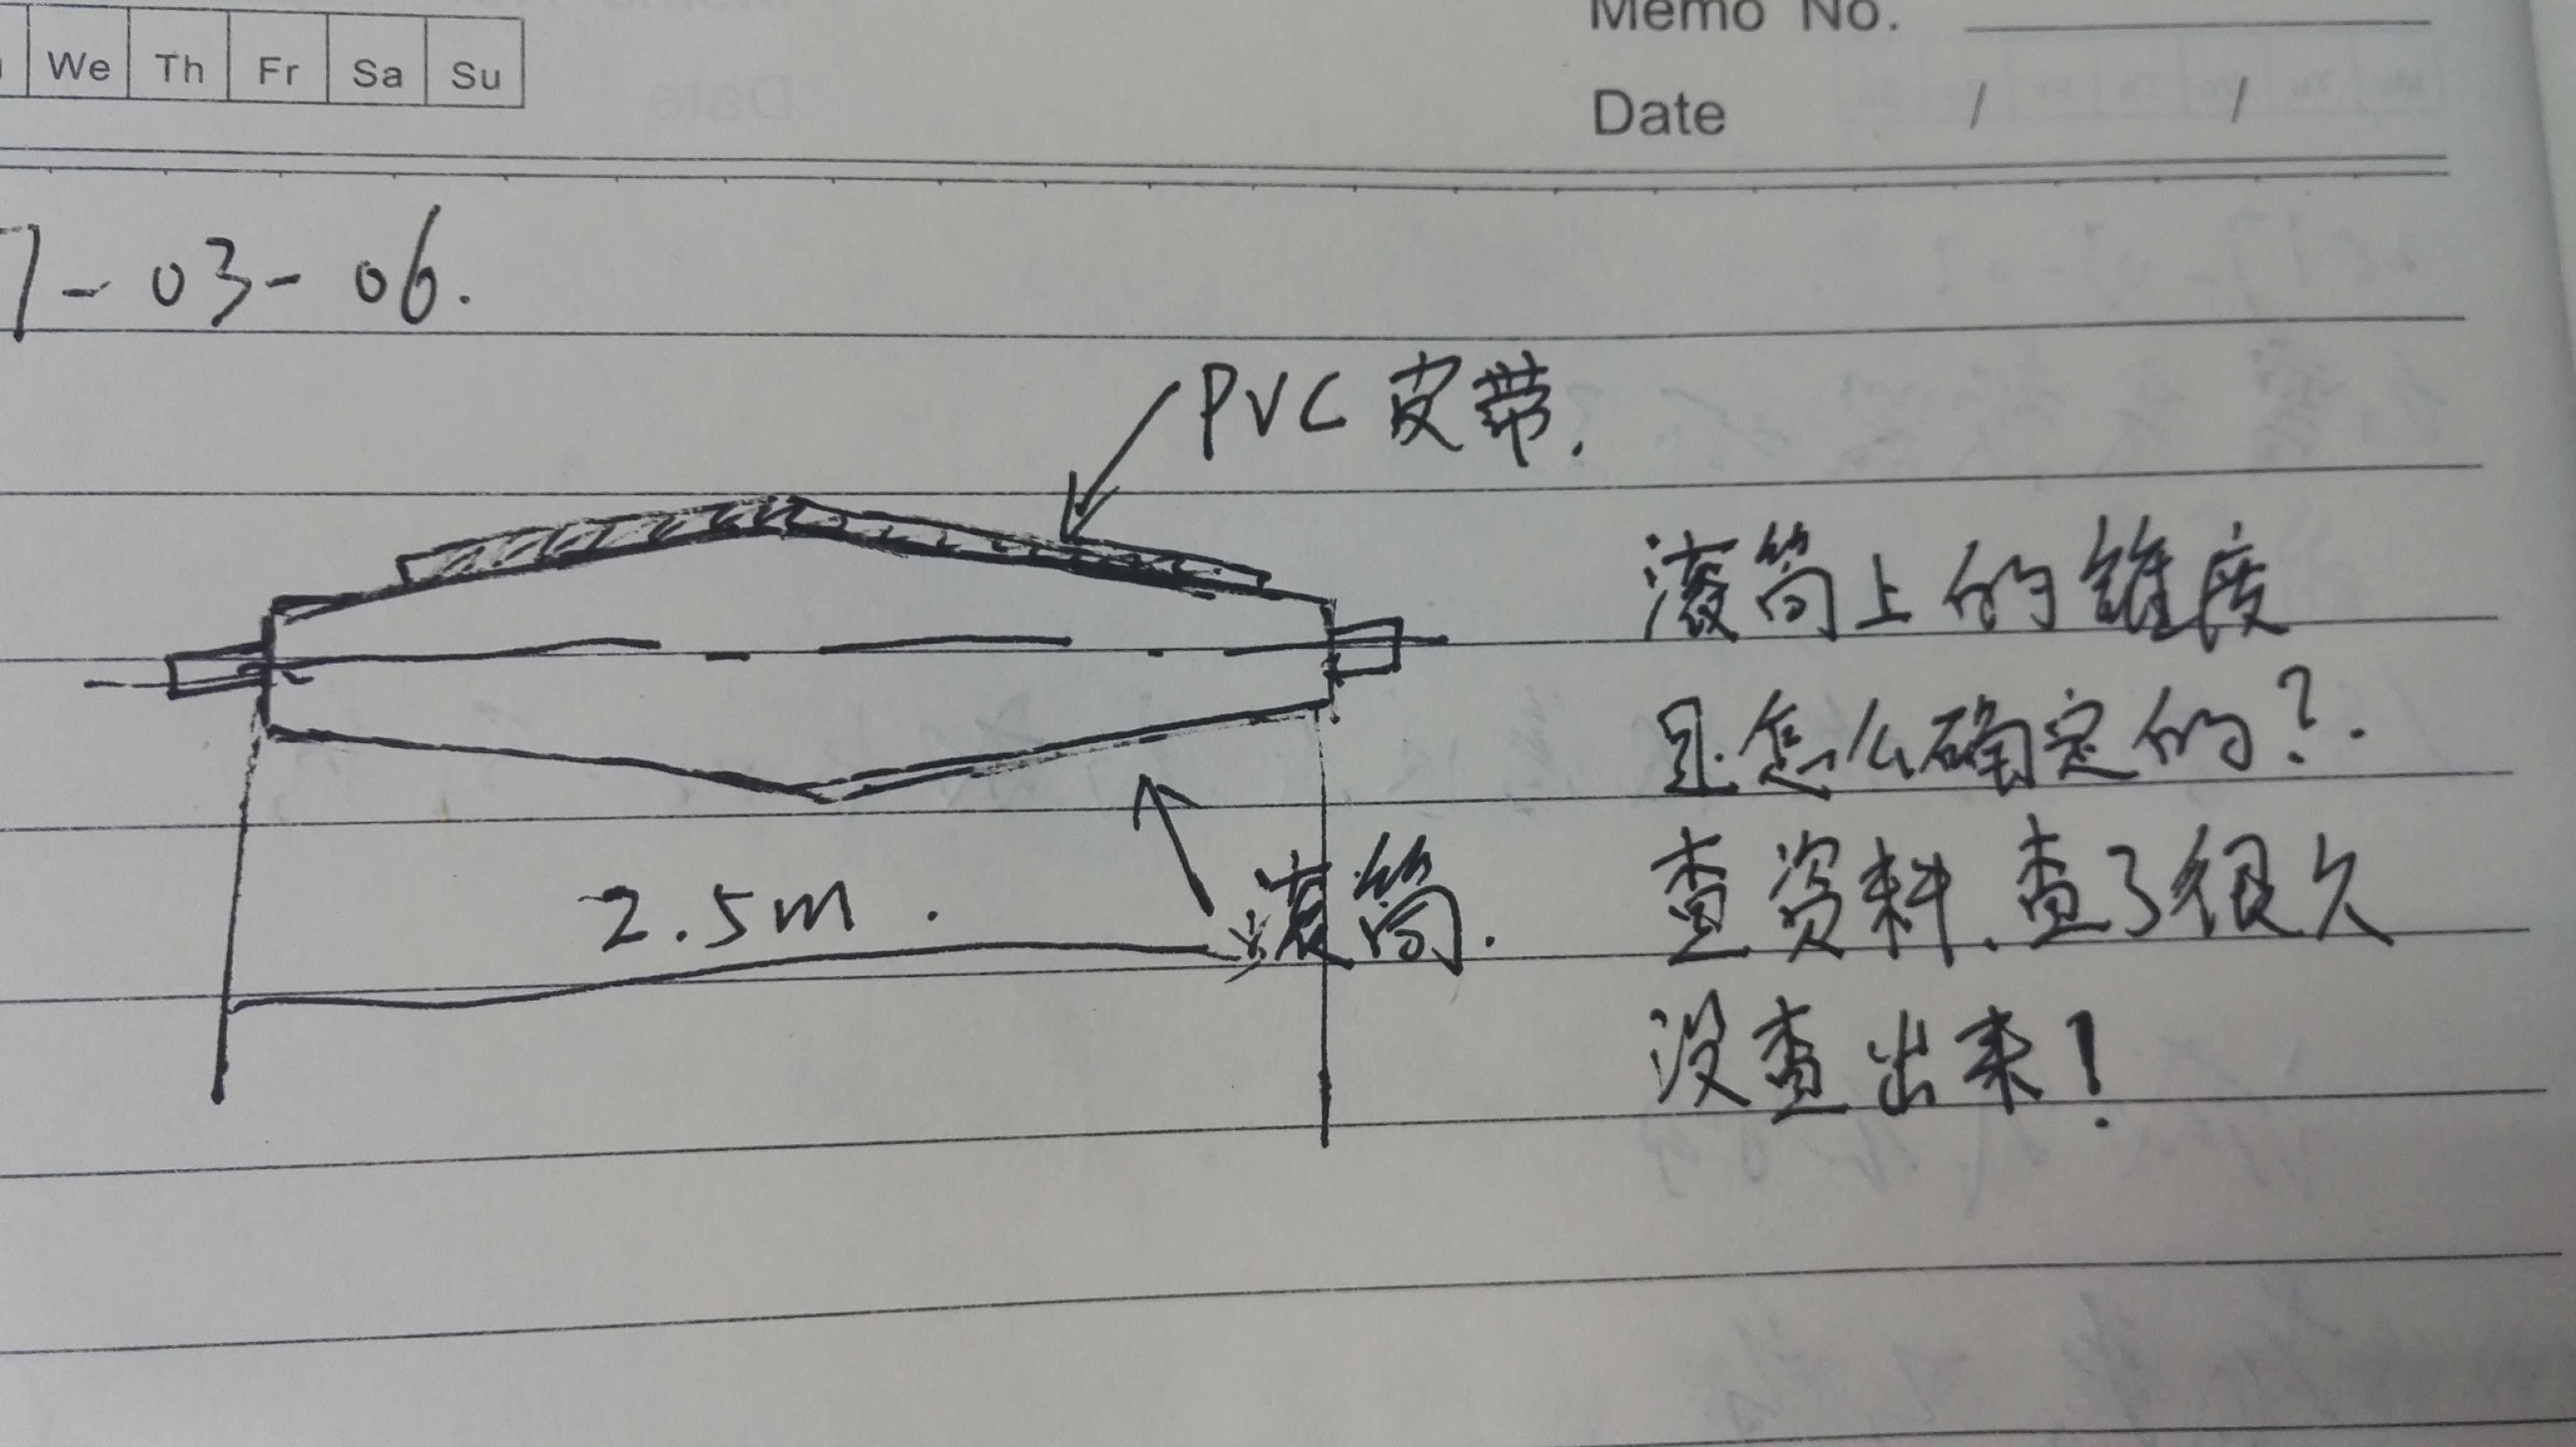 Memo No.
We Th Fr Sa Su
Date / /
7-03-06.
PVC皮带.
滚筒上的锥度
是怎么确定的?.
查资料、查了很久
没查出来!
2.5m.
滚筒.